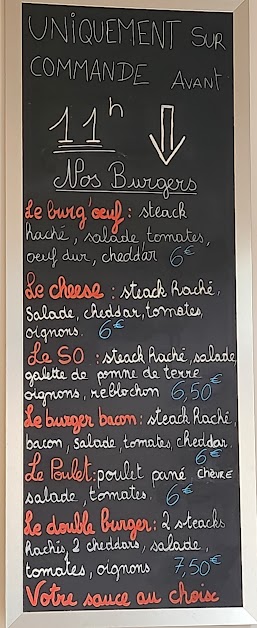 UNIQUEMENT SUR
COMMANDE AVANT
11h
Nos Burgers
Le burg'œuf : steack
haché, salade, tomates,
oeuf dur, cheddar 6€
Le cheese : steack haché,
Salade, cheddar, tomates,
oignons. 6€
Le SO : steack haché, salade,
galette de pomme de terre
oignons, reblochon 6,50€
Le burger bacon : steack haché,
bacon, salade, tomates, cheddar.
6€
Le Poulet : poulet pané CHÈVRE
salade, tomates. 6€
Le double burger : 2 steacks
hachés, 2 cheddars, salade,
tomates, oignons 7,50€
Votre sauce au choix